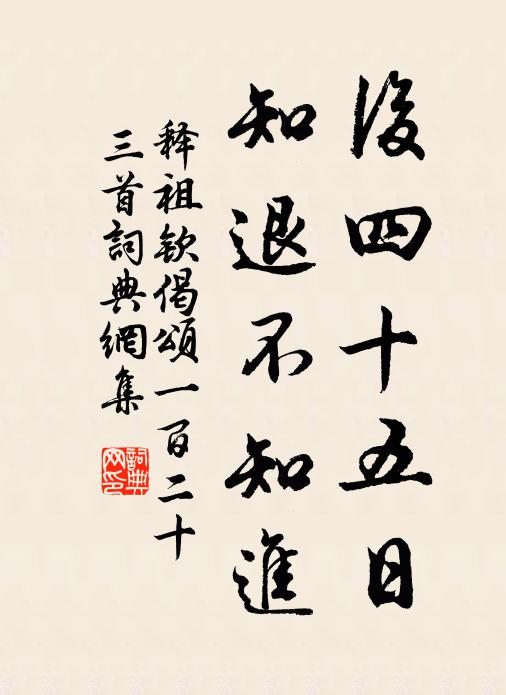 後四十五日
知退不知進
释祖欽偈頌一百二十
三首詞典網集
詞典
网印